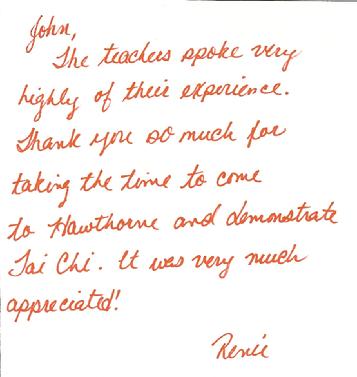 John,
The teachers spoke very
highly of their experience.
Thank you so much for
taking the time to come
to Hawthorne and demonstrate
Tai Chi. It was very much
appreciated!
Renée